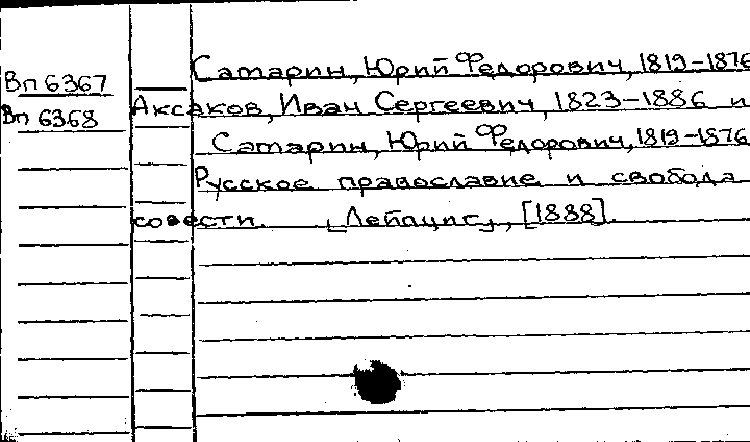 Самарин, Юрий Федорович, 1819-1876
Вп 6367
Аксаков, Иван Сергеевич, 1823-1886 и
Вп 6368
Самарин, Юрий Федорович, 1819-1876
Русское православие и свобода
совести. [Лейпциг], [1888].